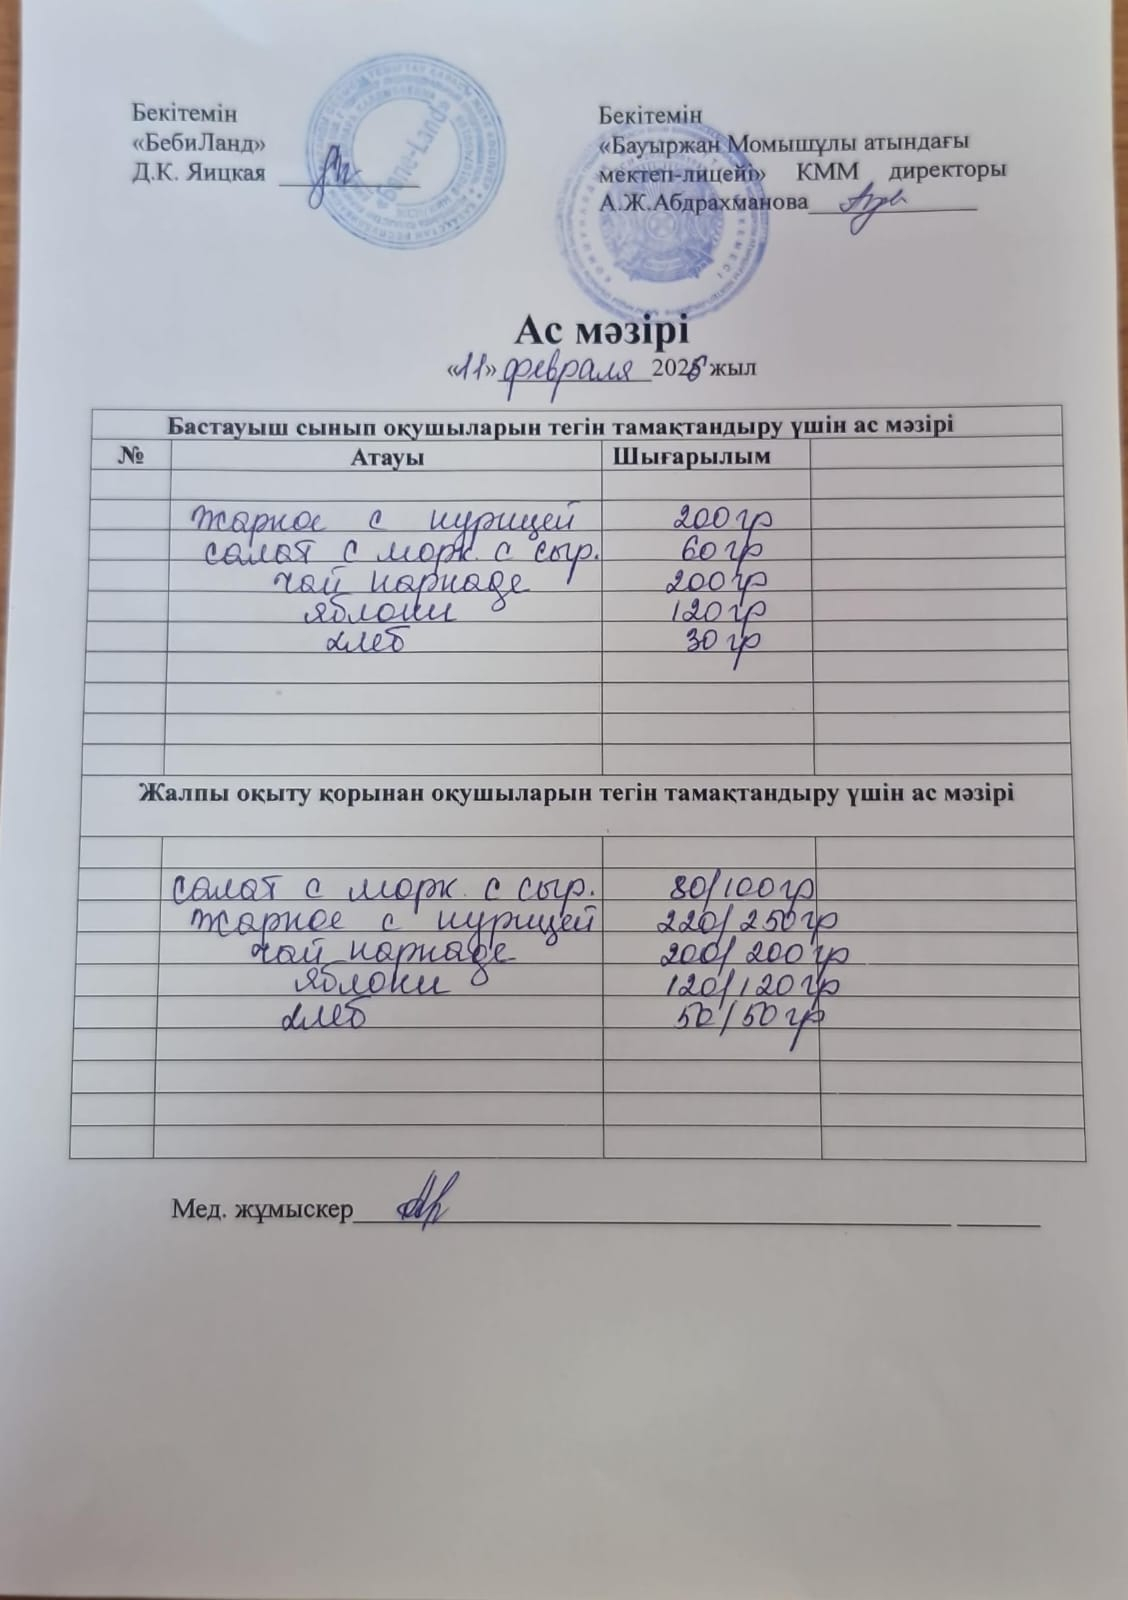 Бекітемін
«БебиЛанд»
Д.К. Яицкая
Бекітемін
«Бауыржан Момышұлы атындағы
мектеп-лицейі» КММ директоры
А.Ж.Абдрахманова
Ас мәзірі
«11» февраля 2026 жыл
Бастауыш сынып оқушыларын тегін тамақтандыру үшін ас мәзірі
№ Атауы Шығарылым
жаркое с курицей 200 гр
салат с морк. с сыр. 60 гр
чай каркаде 200 гр
яблоки 120 гр
хлеб 30 гр
Жалпы оқыту қорынан оқушыларын тегін тамақтандыру үшін ас мәзірі
салат с морк. с сыр. 80/100 гр
жаркое с курицей 220/250 гр
чай каркаде 200/200 гр
яблоки 120/120 гр
хлеб 50/50 гр
Мед. жұмыскер